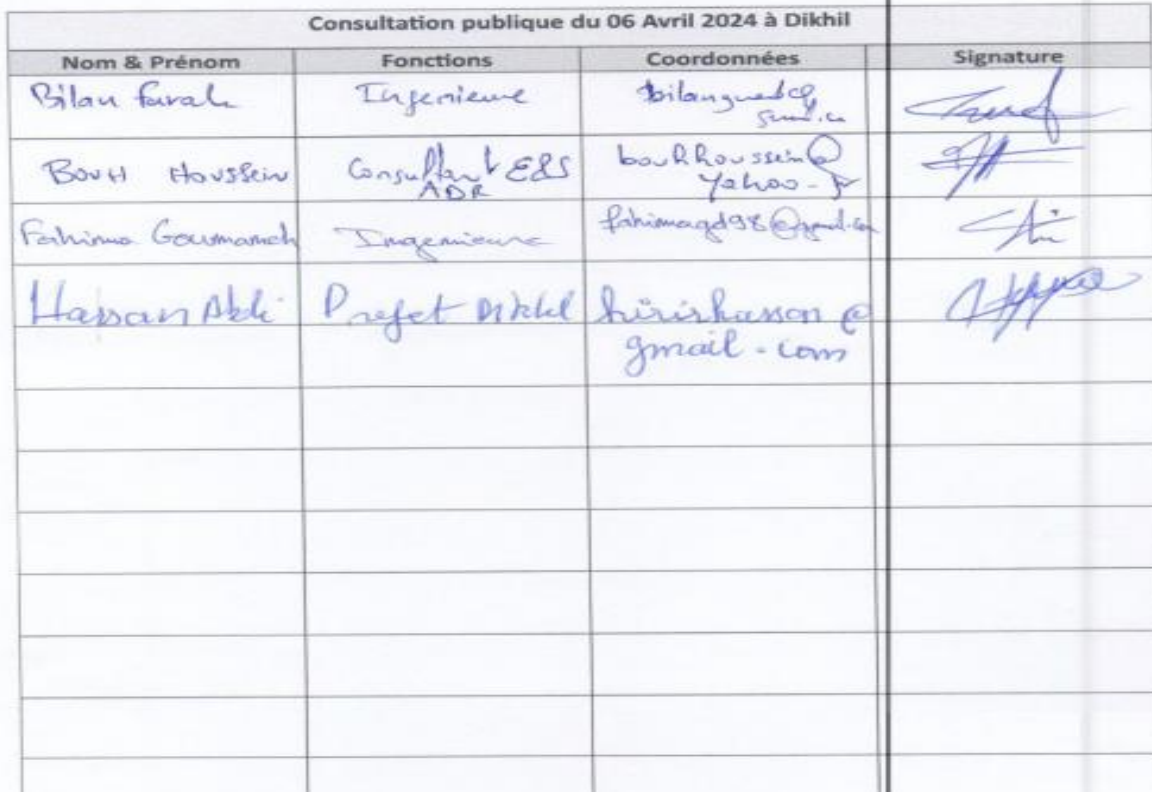 Consultation publique du 06 Avril 2024 à Dikhil
Nom & Prénom Fonctions Coordonnées Signature
Bilan farah Ingenieure
BOUH Houssein Consultant E&S bouhhoussein@
ADR Yahoo.fr
Fahima Goumaneh Ingenieure fahimagd98@gmail.com
Hassan Abdi Prefet Dikhil hirirhassan@
gmail.com